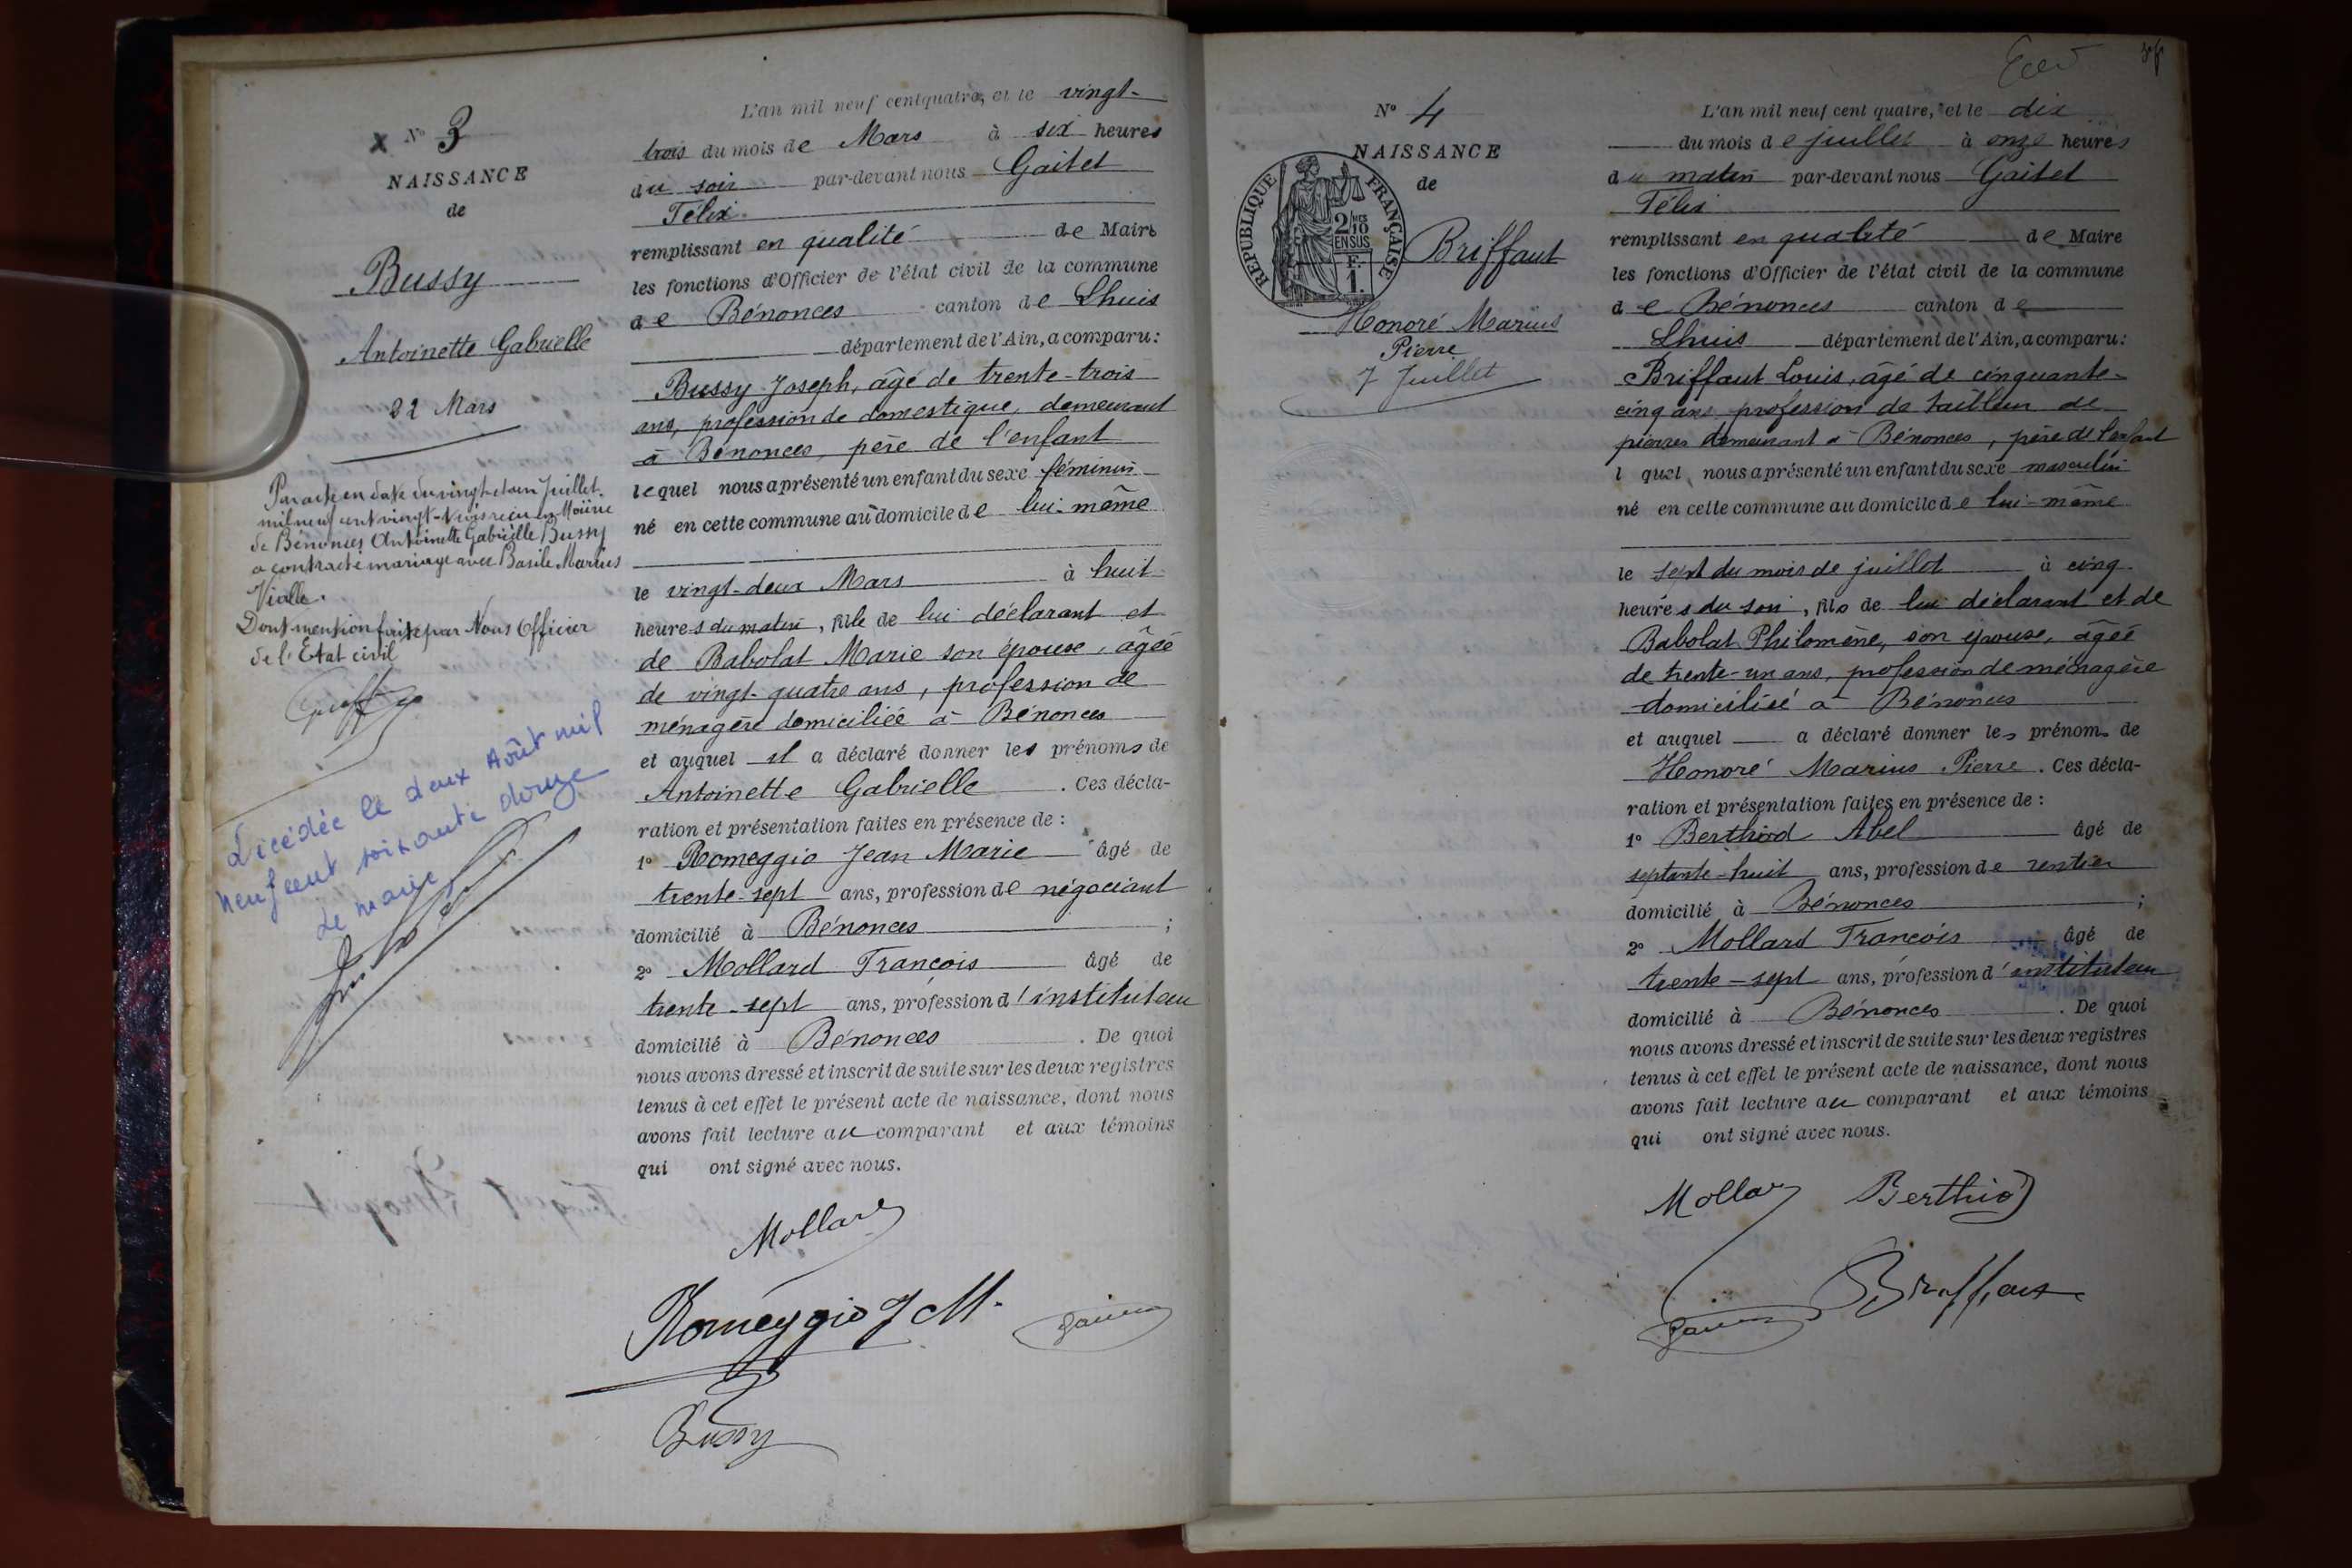 x N° 3
NAISSANCE
de
Bussy
Antoinette Gabrielle
22 Mars
Par acte en date du vingt et un Juillet
mil neuf cent vingt-trois reçu en Mairie
de Bénonces Antoinette Gabrielle Bussy
a contracté mariage avec Basile Marius
Vialle.
Dont mention faite par Nous Officier
de l'Etat civil
Décédée le deux Août mil
neuf cent soixante douze
Le maire
L'an mil neuf cent quatre, et le vingt-
trois du mois de Mars à six heures
du soir par-devant nous Gaitet
Félix
remplissant en qualité de Maire
les fonctions d'Officier de l'état civil de la commune
de Bénonces canton de Lhuis
département de l'Ain, a comparu:
Bussy Joseph, âgé de trente-trois
ans, profession de domestique, demeurant
à Bénonces, père de l'enfant
lequel nous a présenté un enfant du sexe féminin
né en cette commune au domicile de lui-même
le vingt-deux Mars à huit
heures du matin, fille de lui déclarant et
de Babolat Marie son épouse, âgée
de vingt-quatre ans, profession de
ménagère domiciliée à Bénonces
et auquel il a déclaré donner les prénoms de
Antoinette Gabrielle . Ces décla-
ration et présentation faites en présence de :
1° Romeggio Jean Marie âgé de
trente-sept ans, profession de négociant
domicilié à Bénonces ;
2° Mollard François âgé de
trente-sept ans, profession d'instituteur
domicilié à Bénonces . De quoi
nous avons dressé et inscrit de suite sur les deux registres
tenus à cet effet le présent acte de naissance, dont nous
avons fait lecture au comparant et aux témoins
qui ont signé avec nous.
Mollard
Romeggio J M.
Bussy
N° 4
NAISSANCE
de
RÉPUBLIQUE FRANÇAISE
2/10
EN SUS
F.
1.
Briffaut
Honoré Marius
Pierre
7 Juillet
L'an mil neuf cent quatre, et le dix
du mois de juillet à onze heures
du matin par-devant nous Gaitet
Félix
remplissant en qualité de Maire
les fonctions d'Officier de l'état civil de la commune
de Bénonces canton de
Lhuis département de l'Ain, a comparu:
Briffaut Louis, âgé de cinquante-
cinq ans, profession de tailleur de
pierres demeurant à Bénonces, père de l'enfant
l quel nous a présenté un enfant du sexe masculin
né en cette commune au domicile de lui-même
le sept du mois de juillet à cinq
heures du soir, fils de lui déclarant et de
Babolat Philomène, son épouse, âgée
de trente-un ans, profession de ménagère
domicilié à Bénonces
et auquel a déclaré donner les prénoms de
Honoré Marius Pierre . Ces décla-
ration et présentation faites en présence de :
1° Berthiod Abel âgé de
septante-huit ans, profession de rentier
domicilié à Bénonces ;
2° Mollard François âgé de
trente-sept ans, profession d'instituteur
domicilié à Bénonces . De quoi
nous avons dressé et inscrit de suite sur les deux registres
tenus à cet effet le présent acte de naissance, dont nous
avons fait lecture au comparant et aux témoins
qui ont signé avec nous.
Mollard Berthiod
Briffaut